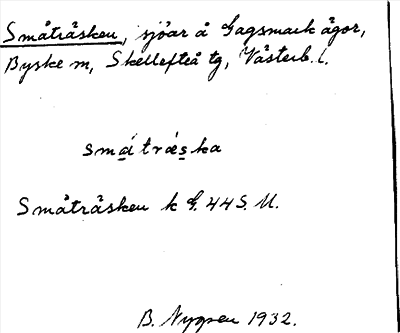 Småträsken, sjöar å Gagsmark ägor,
Byske m, Skellefteå tg, Västerb. l.
småträska
Småträsken k G. 44 S. U.
B. Nygren 1932.